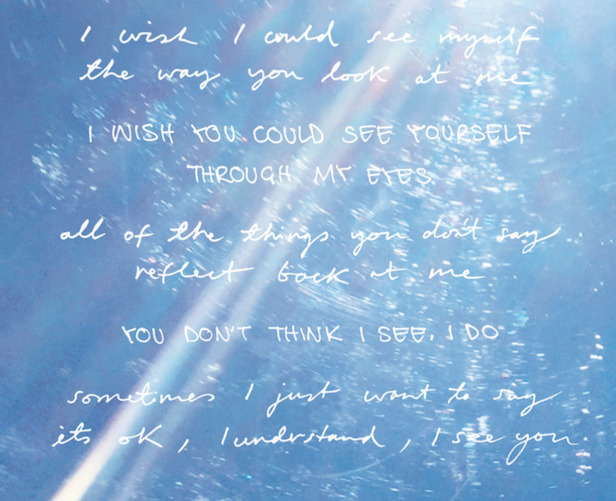 I wish I could see myself
the way you look at me
I WISH YOU COULD SEE YOURSELF
THROUGH MY EYES
all of the things you don't say
reflect back at me
YOU DON'T THINK I SEE. I DO
sometimes I just want to say
its ok, I understand, I see you.